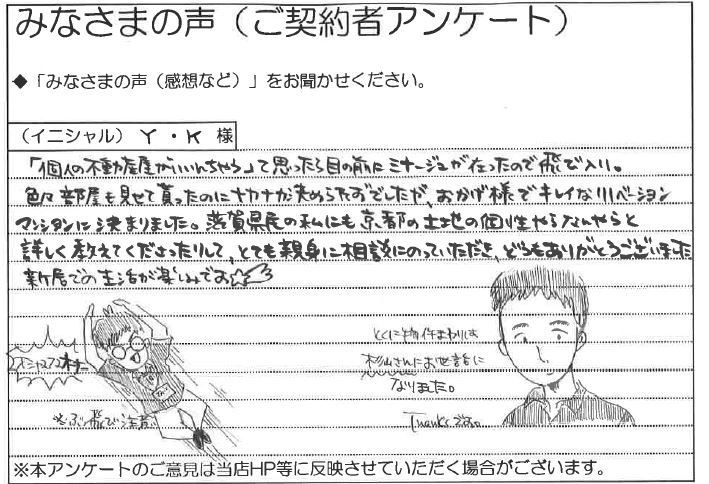 みなさまの声（ご契約者アンケート）
◆「みなさまの声（感想など）」をお聞かせください。
（イニシャル） Y ・ K 様
「個人の不動産屋がいいんちゃう」て思ったら目の前にミナージュが在ったので飛び入り。
色々部屋も見せて貰ったのにナカナカ決められずでしたが、おかげ様でキレイなリノベーション
マンションに決まりました。滋賀県民の私にも京都の土地の個性やらなんやらと
詳しく教えてくださったりして、とても親身に相談にのっていただき、どうもありがとうございました
新居での生活が楽しみです
とくに物件まわりは
杉山さんにお世話に
なりました。
Thanksです。
飛び注意
※本アンケートのご意見は当店HP等に反映させていただく場合がございます。